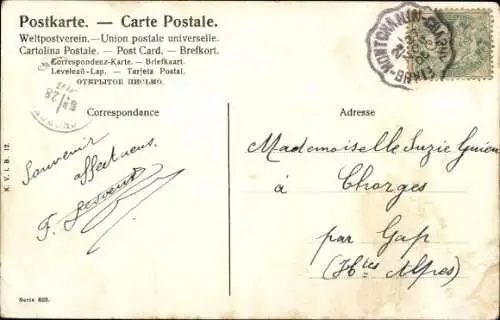 Postkarte. — Carte Postale.
Weltpostverein.—Union postale universelle.
Cartolina Postale. — Post Card. — Brefkort.
Correspondenz-Karte. — Briefkaart.
Levelező-Lap. — Tarjeta Postal.
ОТКРЫТОЕ ПИСЬМО.
Correspondance
Adresse
Souvenir
affectueux.
F.
Mademoiselle Suzie
à
Chorges
par Gap
(Htes Alpes)
K. V. i. B. 12.
Serie